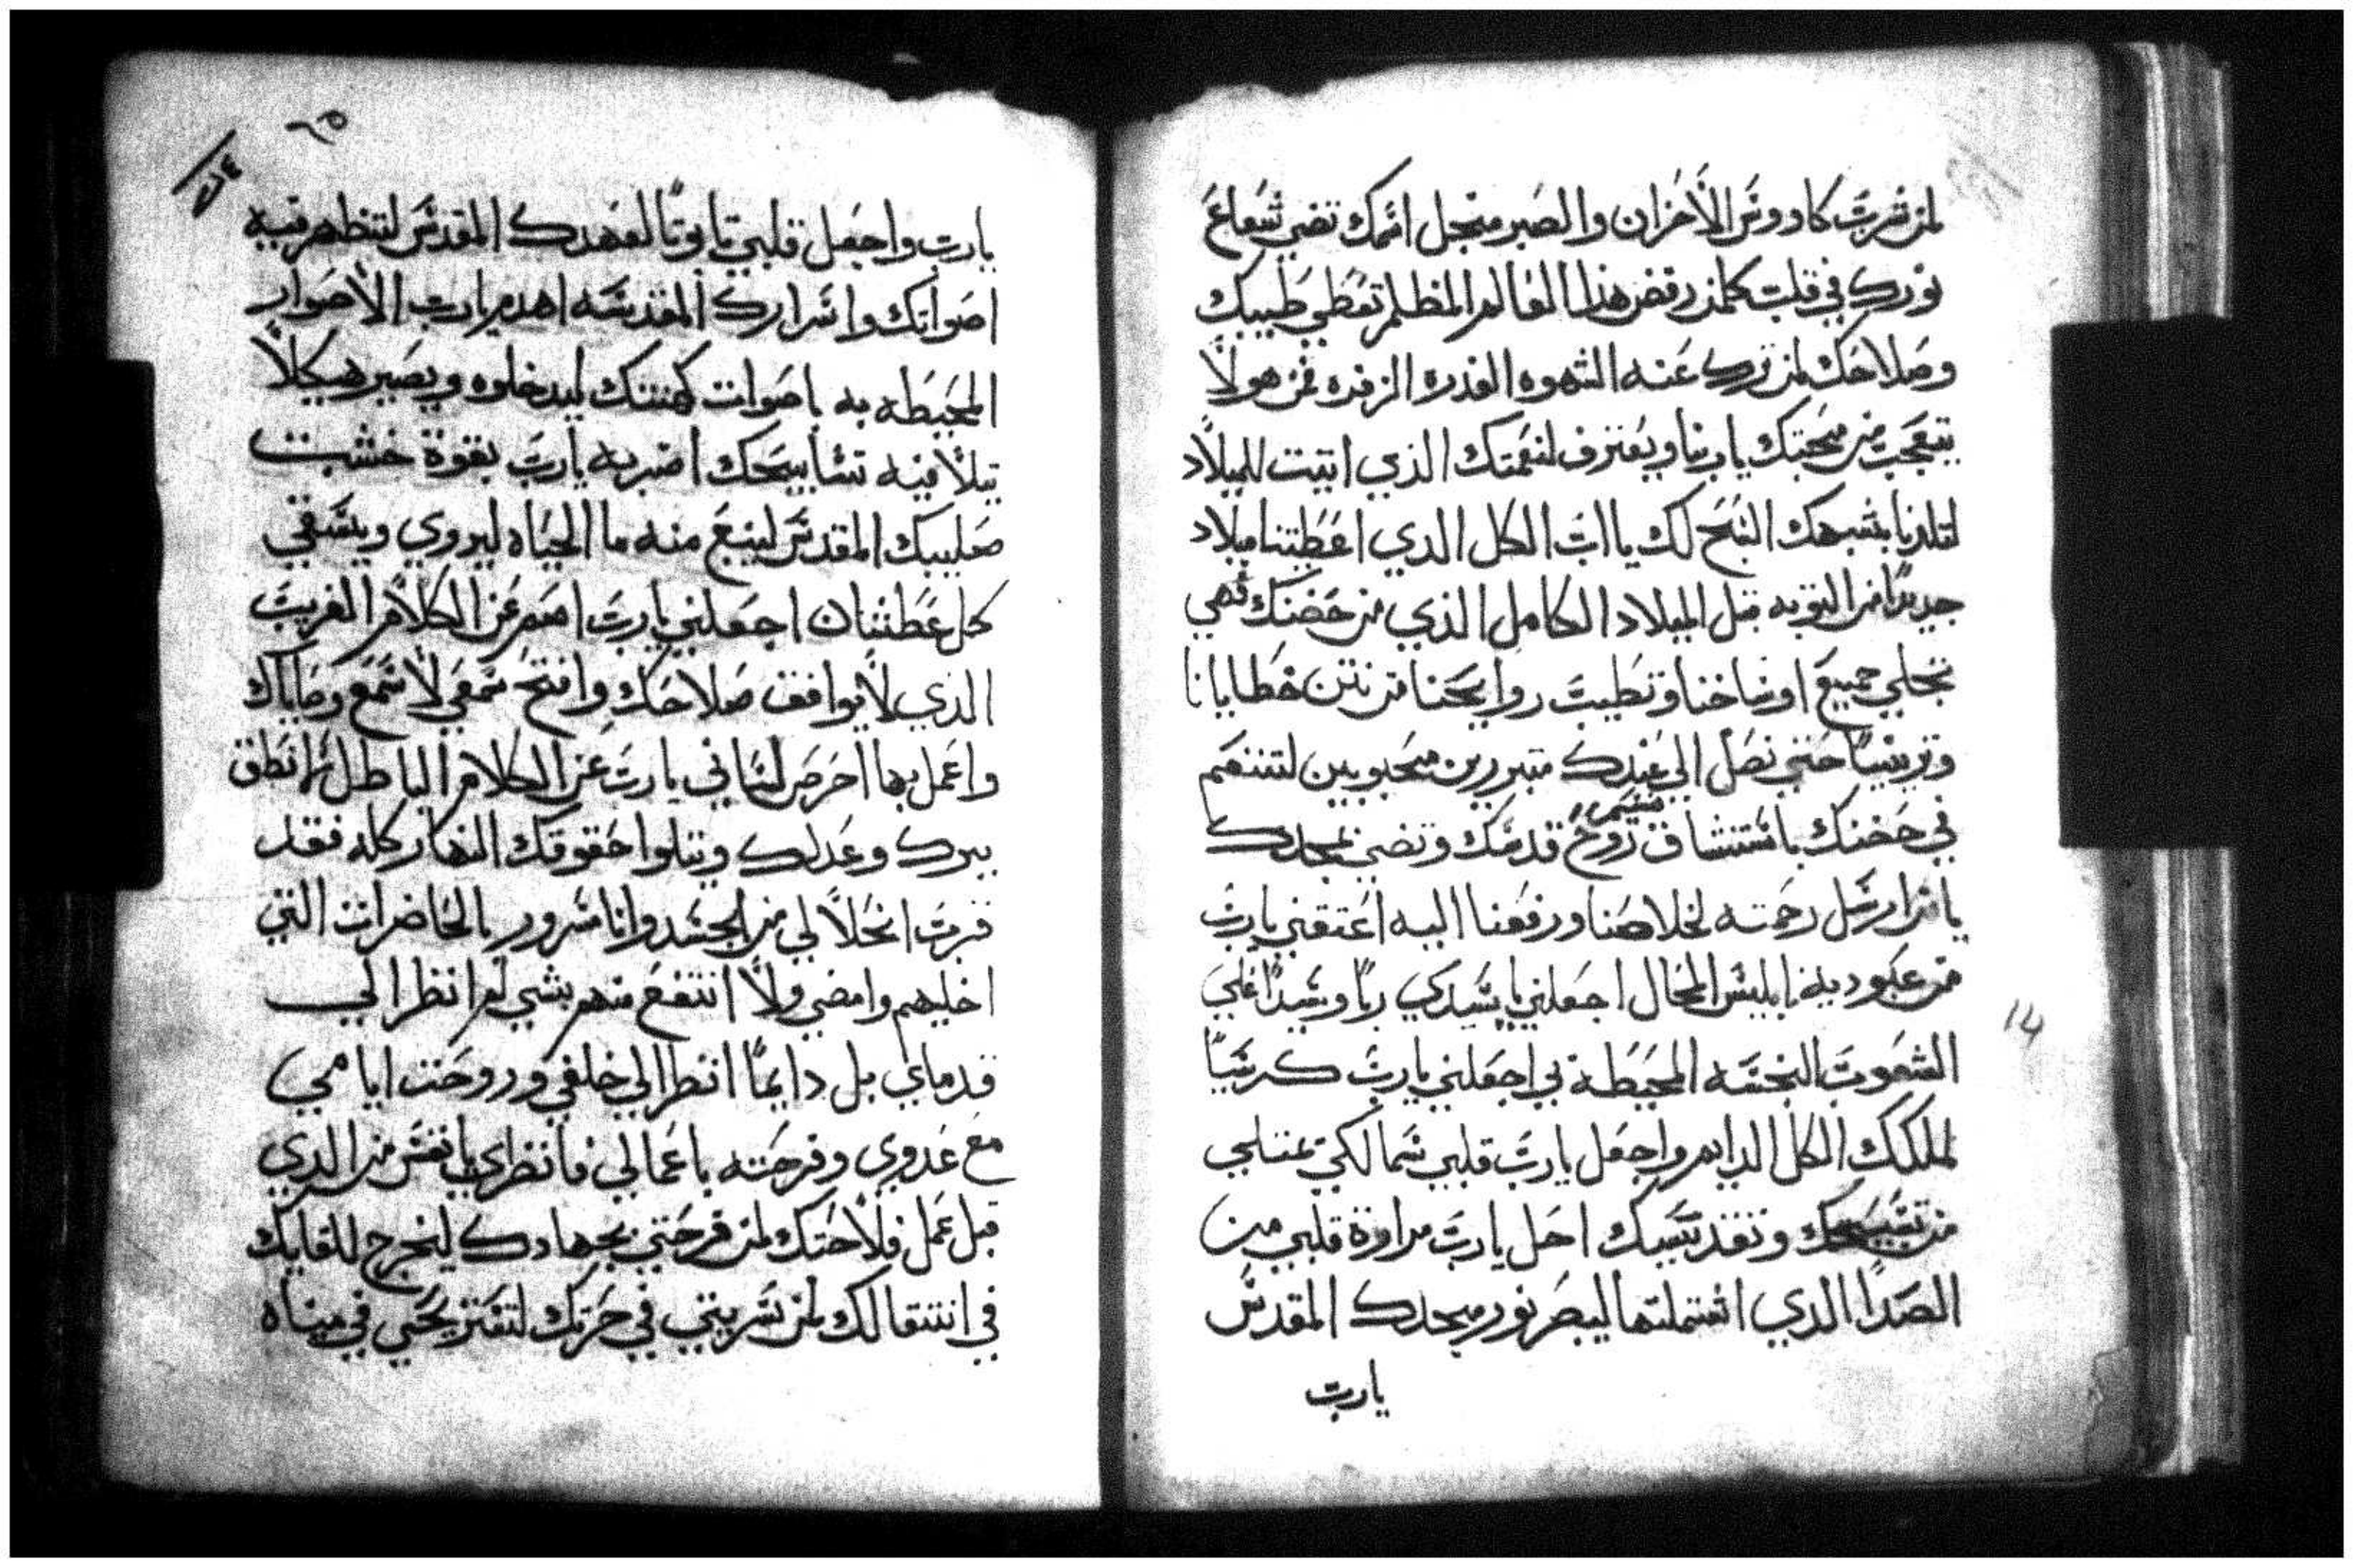 لمن شرب كاووس الاحزان والصبر منجل اسمك تضي شعاع
نورك في قلب كلمن رفض هذا العالم المظلم تعطي طيبك
وصلاحك لمن ترك عنه الشهوه القدره الزفره فمن هولا
يتعجب من محبتك يا ربنا ويعترف لنعمتك الذي اتيت للميلاد
لتلدنا بشبهك النبح لك يا اب الكل الدي اعطيتنا ميلاد
جديدا من التوبه قبل الميلاد الكامل الذي من حضنك فهي
تجلي جميع اوساخنا وتطيب روايحنا من نتن خطايانا
وتربيبنا حتي نصل الي عندك متبررين محبوبين لنتنعم
في حضنك باستنشاق نسيم روح قدسك وتضي بمجدك
يا من ارسل رحمته لخلاصنا ورفعنا اليه اعتقني يارب
من عبوديه ابليس المحال اجعلني يا سيدي ربا وسيدا علي
الشعوب النجسه المحيطه بي اجعلني يارب كرسيا
لملكك الكل الدايم واجعل يارب قلبي سما لكي تمتلي
من تسبيحك وتقديسك احل يارب مراوة قلبي من
الصدا الدي اشتملتها ليبصر نور مجدك المقدس
يارب
٢٥
يارب واجعل قلبي تابوتا لعهدك المقدس لتظهر فيه
اصواتك واسرارك المقدسه اهدم يارب الاصوار
المحيطه به باصوات كهنتك ليدخلوه ويصير هيكلا
تيلا فيه تسابيحك اضربه يارب بقوة خشبت
صليبك المقدس لينبع منه ما الحياه ليروي ويسقي
كل عطشان اجعلني يارب اصم عن الكلام الغريب
الدي لا يوافق صلاحك وافتح سمعي لاسمع وصاياك
واعمل بها احرص لساني يارب عن الكلام الباطل لانطق
ببرك وعدلك ويتلوا حقوقك النهار كله فقد
قرب انحلالي من الجسد وانا مسرور بالحاضرات التي
اخليهم وامضي ولا انتفع منهم بشي لم انظر الي
قدماي بل دايما انظر الي خلفي وروحت ايامي
مع عدوي وفرحته باعمالي فانظري يا نفس من الدي
قبل عمل فلاحتك لمن فرحتي بجهادك ليخرج للقايك
في انتقالك لمن سريتي في حرتك لتستريحي في ميناه